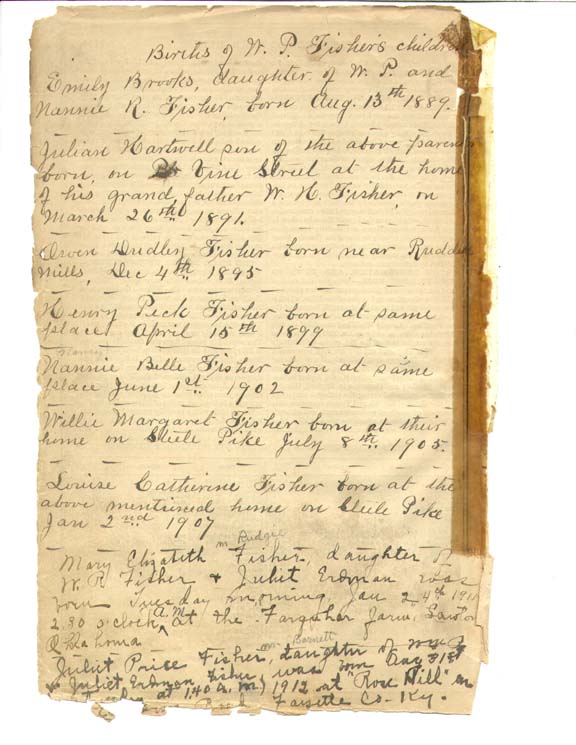 Births of W. P. Fisher's children
Emily Brooks, daughter of W. P. and
Nannie R. Fisher, born Aug. 13th 1889.
Julian Hartwell son of the above parents
born, on Vine Street at the home
of his grand father W. H. Fisher, on
March 26th 1891.
Owen Dudley Fisher born near Ruddels
Mills, Dec 4th 1895
Henry Peck Fisher born at same
place April 15th 1899
Nancy
Nannie Belle Fisher born at same
place June 1st 1902
Willie Margaret Fisher born at their
home on Steele Pike July 8th 1905.
Louise Catherine Fisher born at the
above mentioned home on Steele Pike
Jan 2nd 1907
m Pudgie
Mary Elizabeth Fisher, daughter of
W. P. Fisher & Juliet Erdman was
born Tuesday morning, Jan 24th 191
2.30 o'clock A.M. at the Farquhar farm,
Oklahoma
m. Barnett
Juliet Price Fisher, daughter of
& Juliet Erdman Fisher, was born Aug 31st
at 1.40 A.M. 1912 at "Rose Hill" on
Fayette Co. Ky.